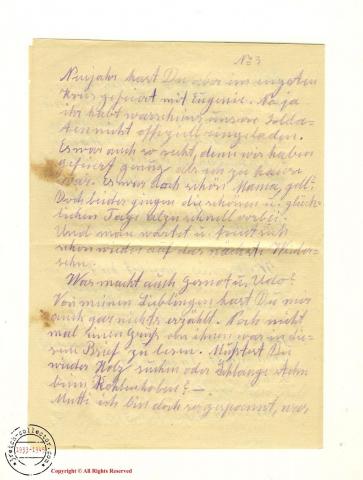 No 3
Neujahr hast Du aber im engsten
Kreis gefeiert mit Eugenie. Na ja
ihr habt unsere Solda-
ten nicht offiziell eingeladen.
Es war auch so recht, denn wir haben
gefeiert genug als ich zu Hause
war. Es war doch schön Mama, gell?
Doch leider gingen die schönen u. glück-
lichen Tage allzu schnell vorbei!
Und man wartet u. freut sich
schon wieder auf das nächste Wieder-
sehn.
Was macht auch Gernot u. Udo?
Von meinen Lieblingen hast Du mir
auch gar nichts erzählt. Noch nicht
mal einen Gruß von ihnen war in die-
sem Brief zu lesen. Mußtest Du
wieder Holz suchen oder Schlange stehn
beim Kohlenholen? —
Mutti ich bin doch so gespannt, was
reich-collector.com
1933-1945
Copyright © All Rights Reserved